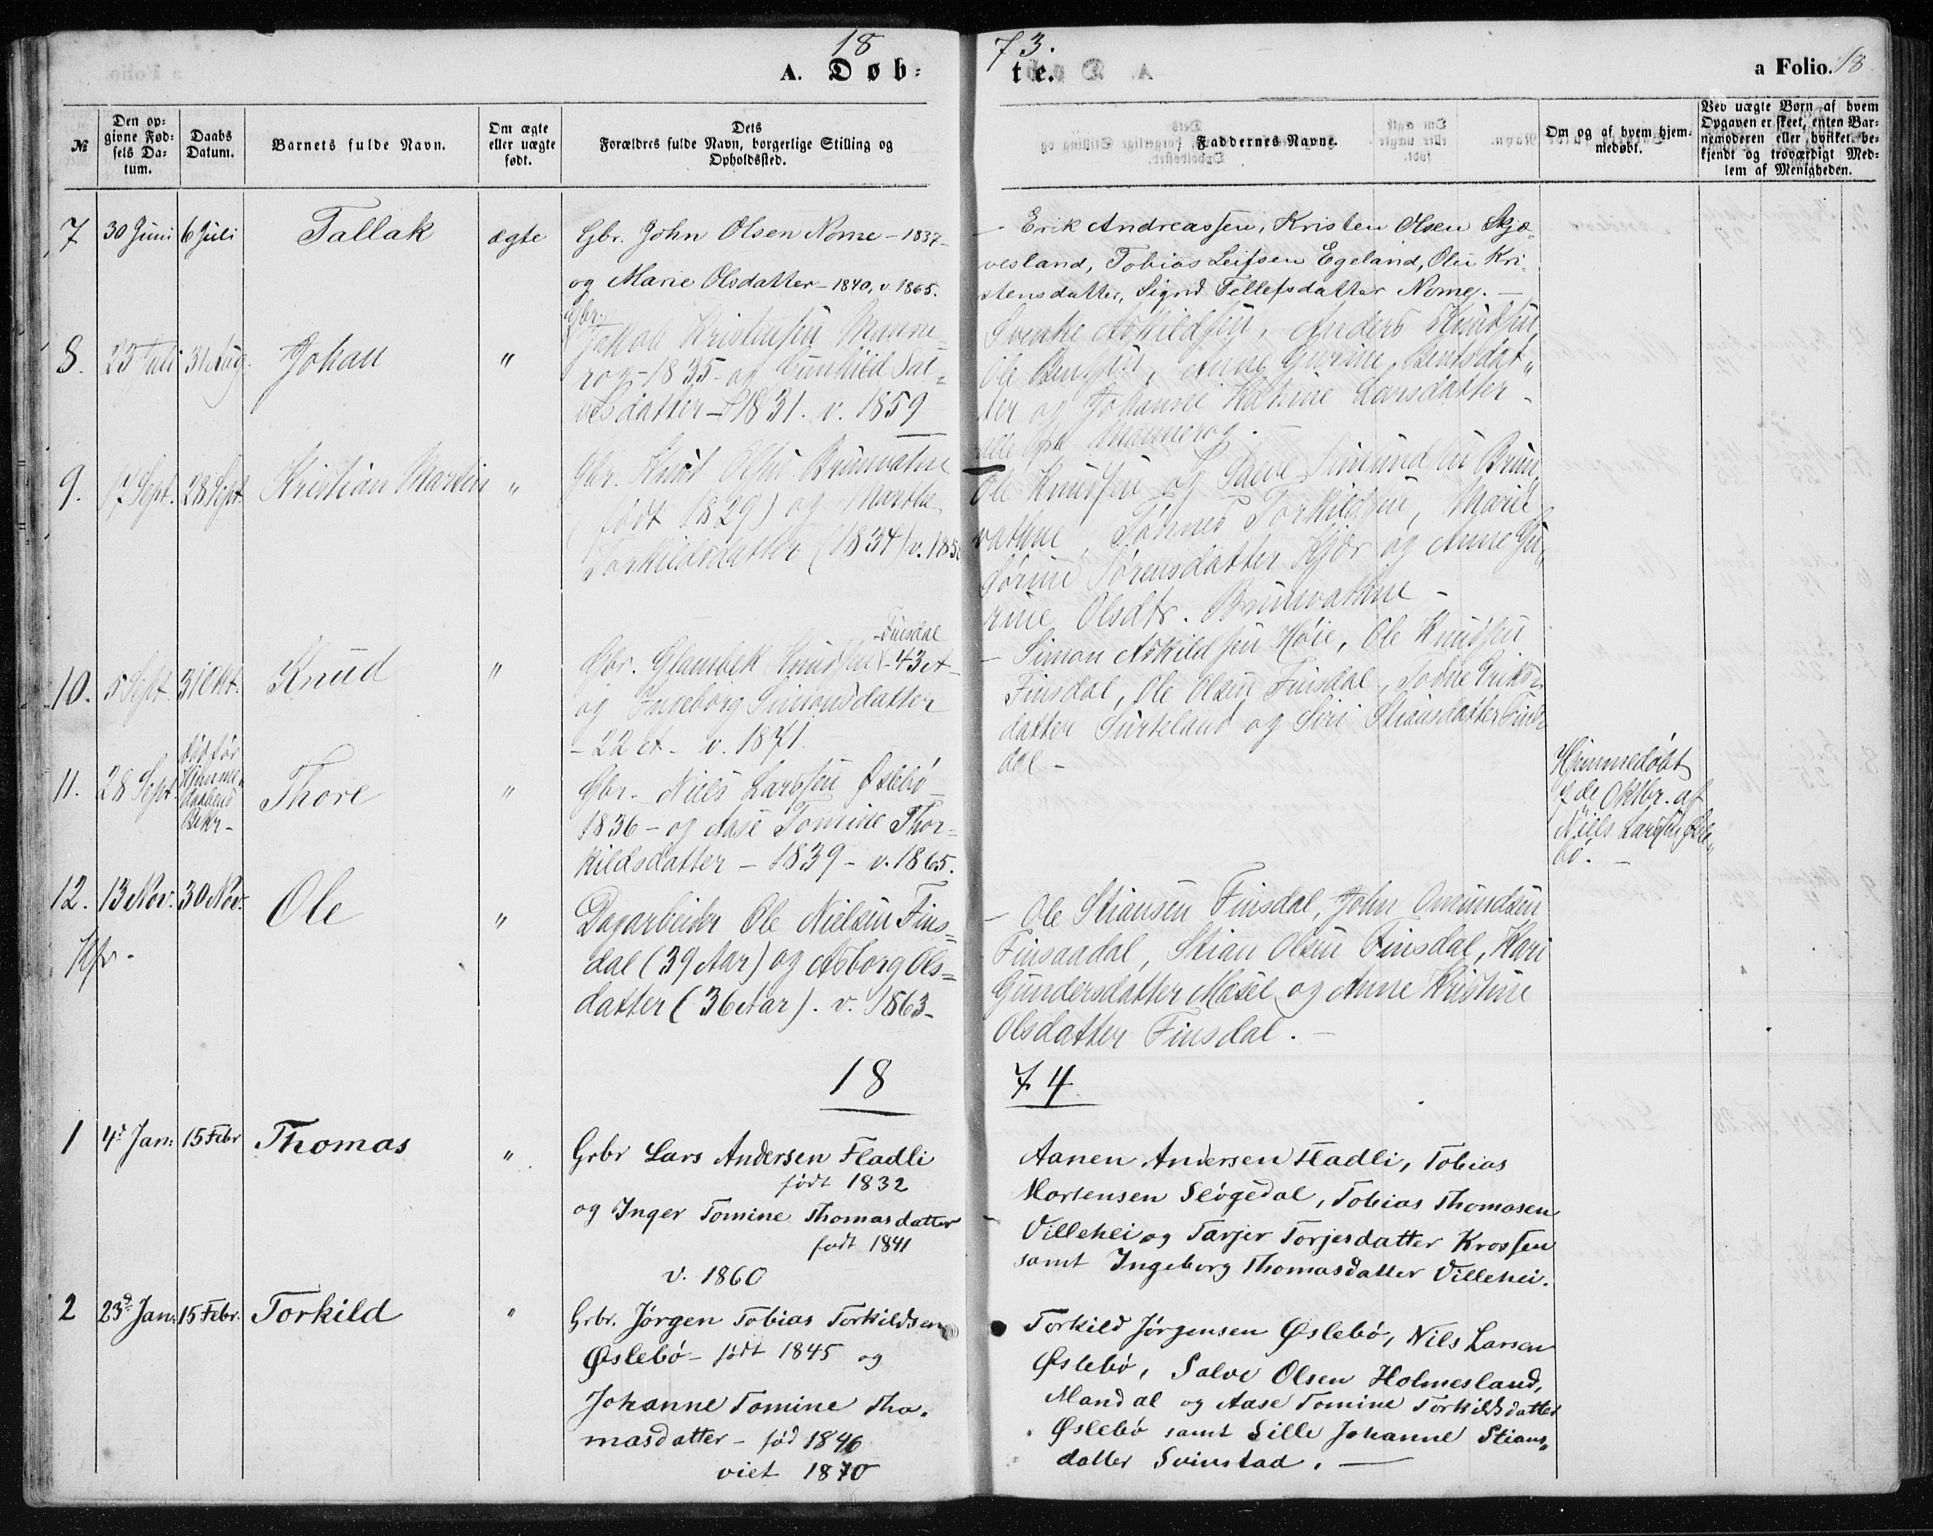 18 73.
A. Døb- te. a Folio. 18
№
Den op-
givne Fød-
sels Da-
tum.
Daabs
Datum.
Barnets fulde Navn.
Om ægte
eller uægte
født.
Dets
Forældres fulde Navn, borgerlige Stilling og
Opholdssted.
Faddernes Navne.
Om og af hvem hjem-
medøbt.
Ved uægte Børn af hvem
Opgaven er skeet, enten Bar-
nemoderen eller hvilket be-
kjendt og troværdigt Med-
lem af Menigheden.
7 30 Juni 6 Juli Tallak ægte Gbr. John Olsen Nome - 1837-
og Marie Olsdatter - 1840, v. 1865.
- Erik Andreassen, Kristen Olsen Skjæ-
vesland, Tobias Leifsen Egeland, Olu Kri-
stensdatter, Signd Tellefsdatter Nome. -
8. 23 Juli 31 Aug. Johan " Gbr.
Jakob Kristensen Manne-
rog - 1835 - og Gunhild Sal-
vesdatter - 1831. v. 1859
Svenke Askildsen, Anders Knudsen
Ole Bentsen, Anne Gurine Bentsdat-
ter og Johanne Katrine Larsdatter -
alle fra Mannerog. -
9. 17 Sept. 28 Sept. Kristian Martin " Gbr. Knud Olsen Brunvatne
(født 1829) og Marthe
Torkildsdatter (1834) v. 185
Ole Knudsen og Salve Simundsen Brun-
vathne, Tønnes Torkildsen, Marie
Sørine Sørensdatter Kjær og Anne Gu-
rine Olsdtr. Brunvathne -
10. 5 Sept. 31 Okt. Knud " Gbr. Glambek Knudsen Finsdal - 43 et -
og Ingeborg Simonsdatter
- 22 et - v. 1871.
- Simon Askildsen Høie, Ole Knudsen
Finsdal, Ole Olsen Finsdal, Tobne Eriks-
datter Surteland og Siri Stiansdatter Fins-
dal -
11. 28 Sept. død før
Thore " Gbr. Niels Larssen Øslebø -
1836 - og Aase Tomine Thor-
kildsdatter - 1839 - v. 1865.
Hjemmedøbt
7de Oktbr. af
Niels Larssen Øsle-
bø. -
12. 13 Nov. 30 Nov. Ole " Dagarbeider Ole Nielsen Fins-
dal (39 Aar) og Asborg Ols-
datter (36 Aar). v. 1863 -
- Ole Stiansen Finsdal, John Omundsen
Finsaadal, Stian Olsen Finsdal, Kari
Gundersdatter Mosel og Anne Kristine
Olsdatter Finsdal. -
18 74.
1 4de Jan: 15 Febr Thomas " Grbr Lars Andersen Fladli
født 1832
og Inger Tomine Thomasdatter
født 1841
v. 1860
Aanen Andersen Fladli, Tobias
Mortensen Sløgedal, Tobias Thomasen
Villehei og Tarjer Torjesdatter Krossen
samt Ingeborg Thomasdatter Villehei.
2 23d Jan: 15 Febr. Torkild " Grbr. Jørgen Tobias Torkildsen
Øslebø - født 1845 og
Johanne Tomine Tho-
masdatter - fød 1846
viet 1870
Torkild Jørgensen Øslebø, Nils Larsen
Øslebø, Salve Olsen Holmesland,
Mandal og Aase Tomine Torkildsdatter
Øslebø samt Sille Johanne Stians-
datter Svinstad. -